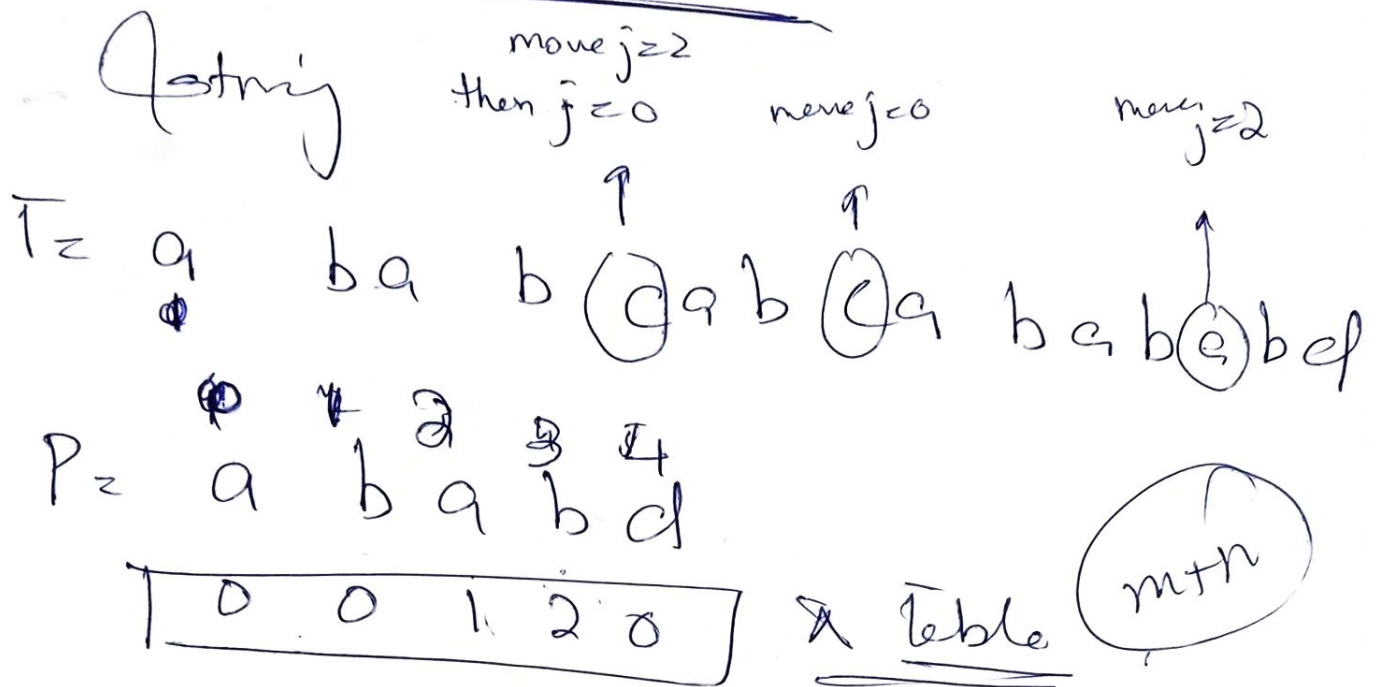 string
move j=2
then j=0
move j=0
move j=2
T= a b a b c a b c a b a b a b d
P= a b a b d
0 1 2 3 4
0 0 1 2 0
π Table
m+n